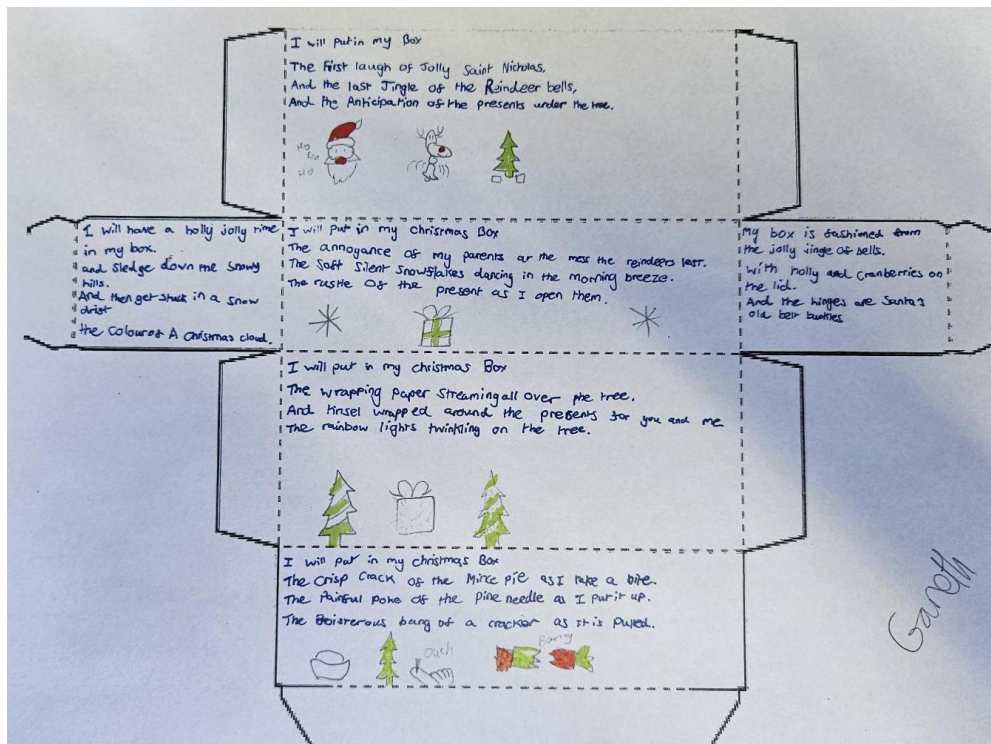 I will put in my Box
The First laugh of Jolly Saint Nicholas,
And the last Jingle of the Reindeer bells,
And the Anticipation of the presents under the tree.
Ho
Ho
Ho
I will have a holly jolly time
in my box.
and Sledge down the Snowy
hills.
And then get stuck in a snow
drift
the colour of A christmas cloud.
I will put in my christmas Box
The annoyance of my parents at the mess the reindeers left.
The Soft Silent Snowflakes dancing in the morning breeze.
The rustle of the present as I open them.
My box is fashioned from
the jolly jingle of bells.
with holly and cranberries on
the lid.
And the hinges are Santa's
old belt buckles
I will put in my christmas Box
The wrapping Paper Streaming all over the tree,
And tinsel wrapped around the presents for you and me
The rainbow lights twinkling on the tree.
I will put in my christmas Box
The Crisp Crack of the Mince Pie as I take a bite.
The Painful Poke of the Pine needle as I put it up.
The Boisterous bang of a cracker as it is pulled.
ouch
Gareth